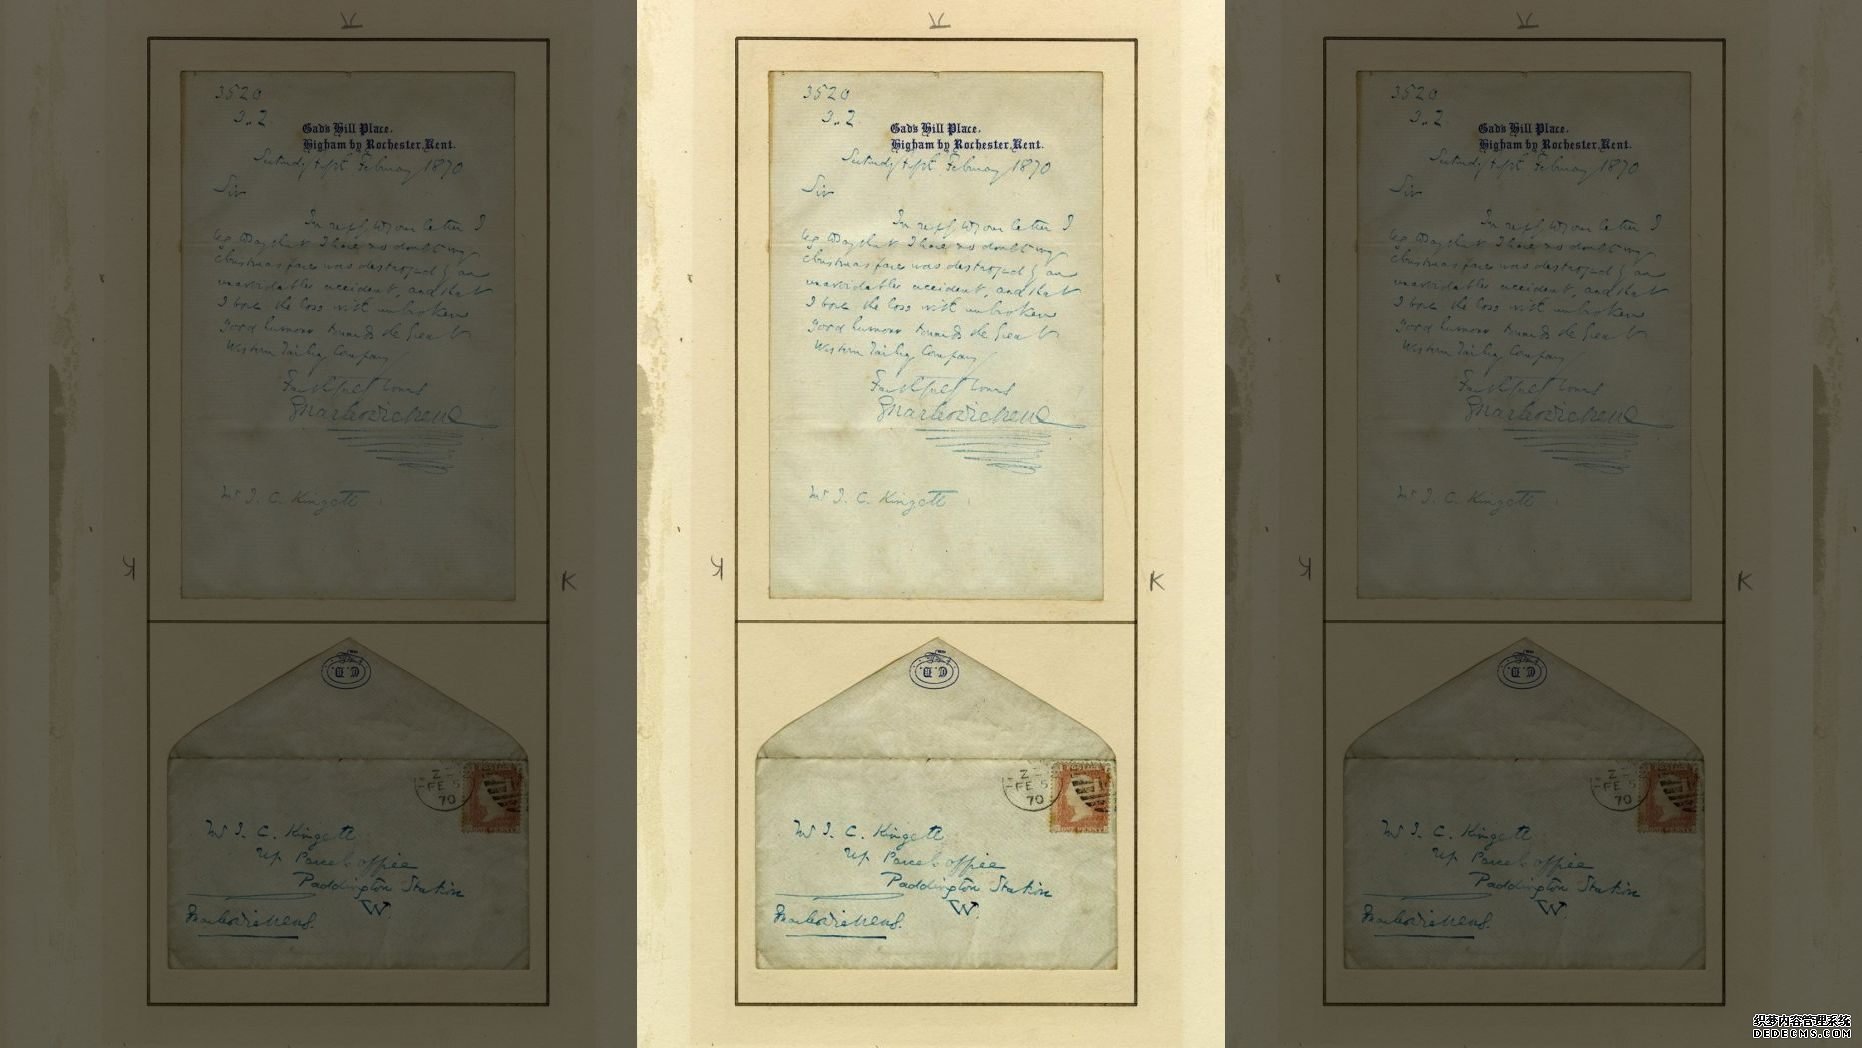 3520
3.2
Gad's Hill Place,
Higham by Rochester, Kent.
Saturday Fifth February 1870
Sir
In reply to your letter I
beg to say that I have no doubt my
Christmas fare was destroyed by an
unavoidable accident, and that
I bore the loss with unbroken
good humour towards the Great
Western Railway Company
Faithfully Yours
Charles Dickens
Mr J. C. Kingett
K
K
K
C.D.
Z
FE 5
70
Mr J. C. Kingett
Up Parcels office
Paddington Station
W.
Charles Dickens.
织梦内容管理系统
DEDECMS.COM